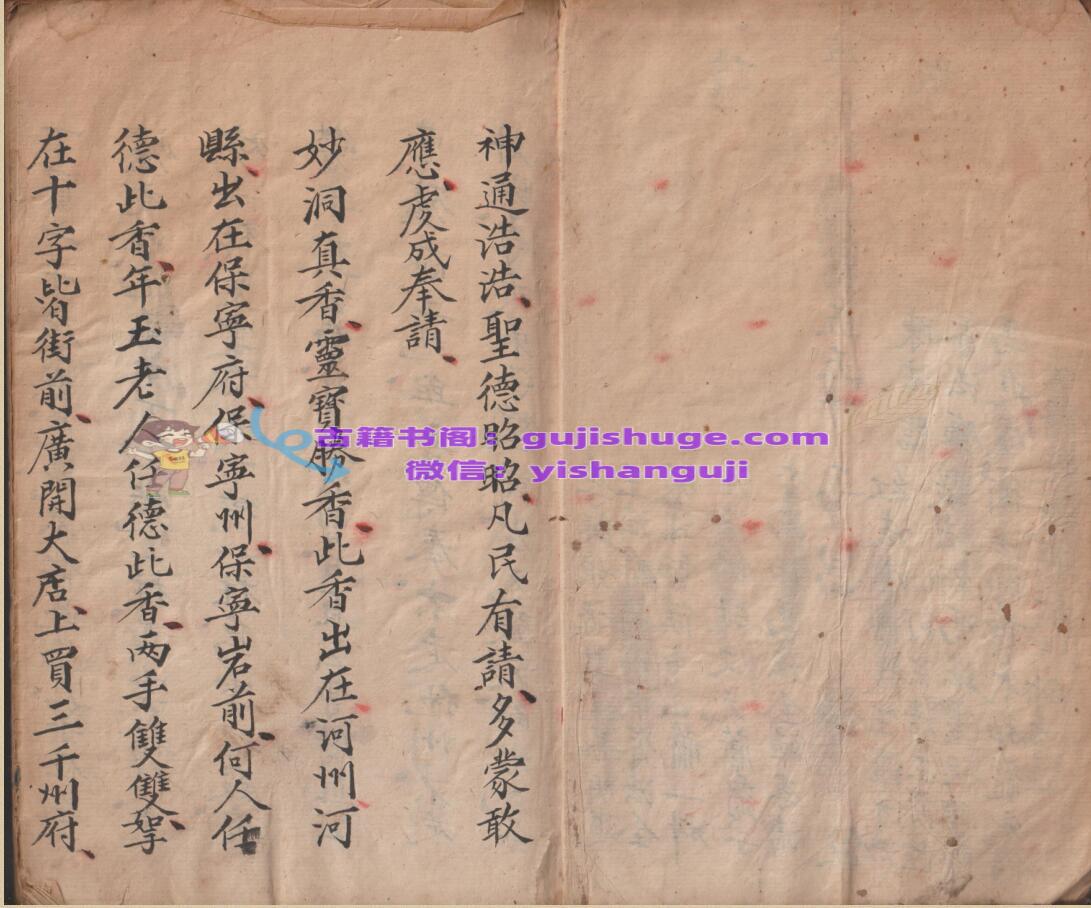 神通浩浩、聖德昭昭、凡民有請、多蒙敢
應、虔成奉請、
妙洞真香、靈寶勝香、此香出在河州河
縣、出在保寧府、保寧州、保寧岩前、何人任
德此香、年玉老人任德此香、兩手雙雙拏、
在十字皆街前、廣開大店、上買三千州府、
古籍书阁：gujishuge.com
微信：yishanguji